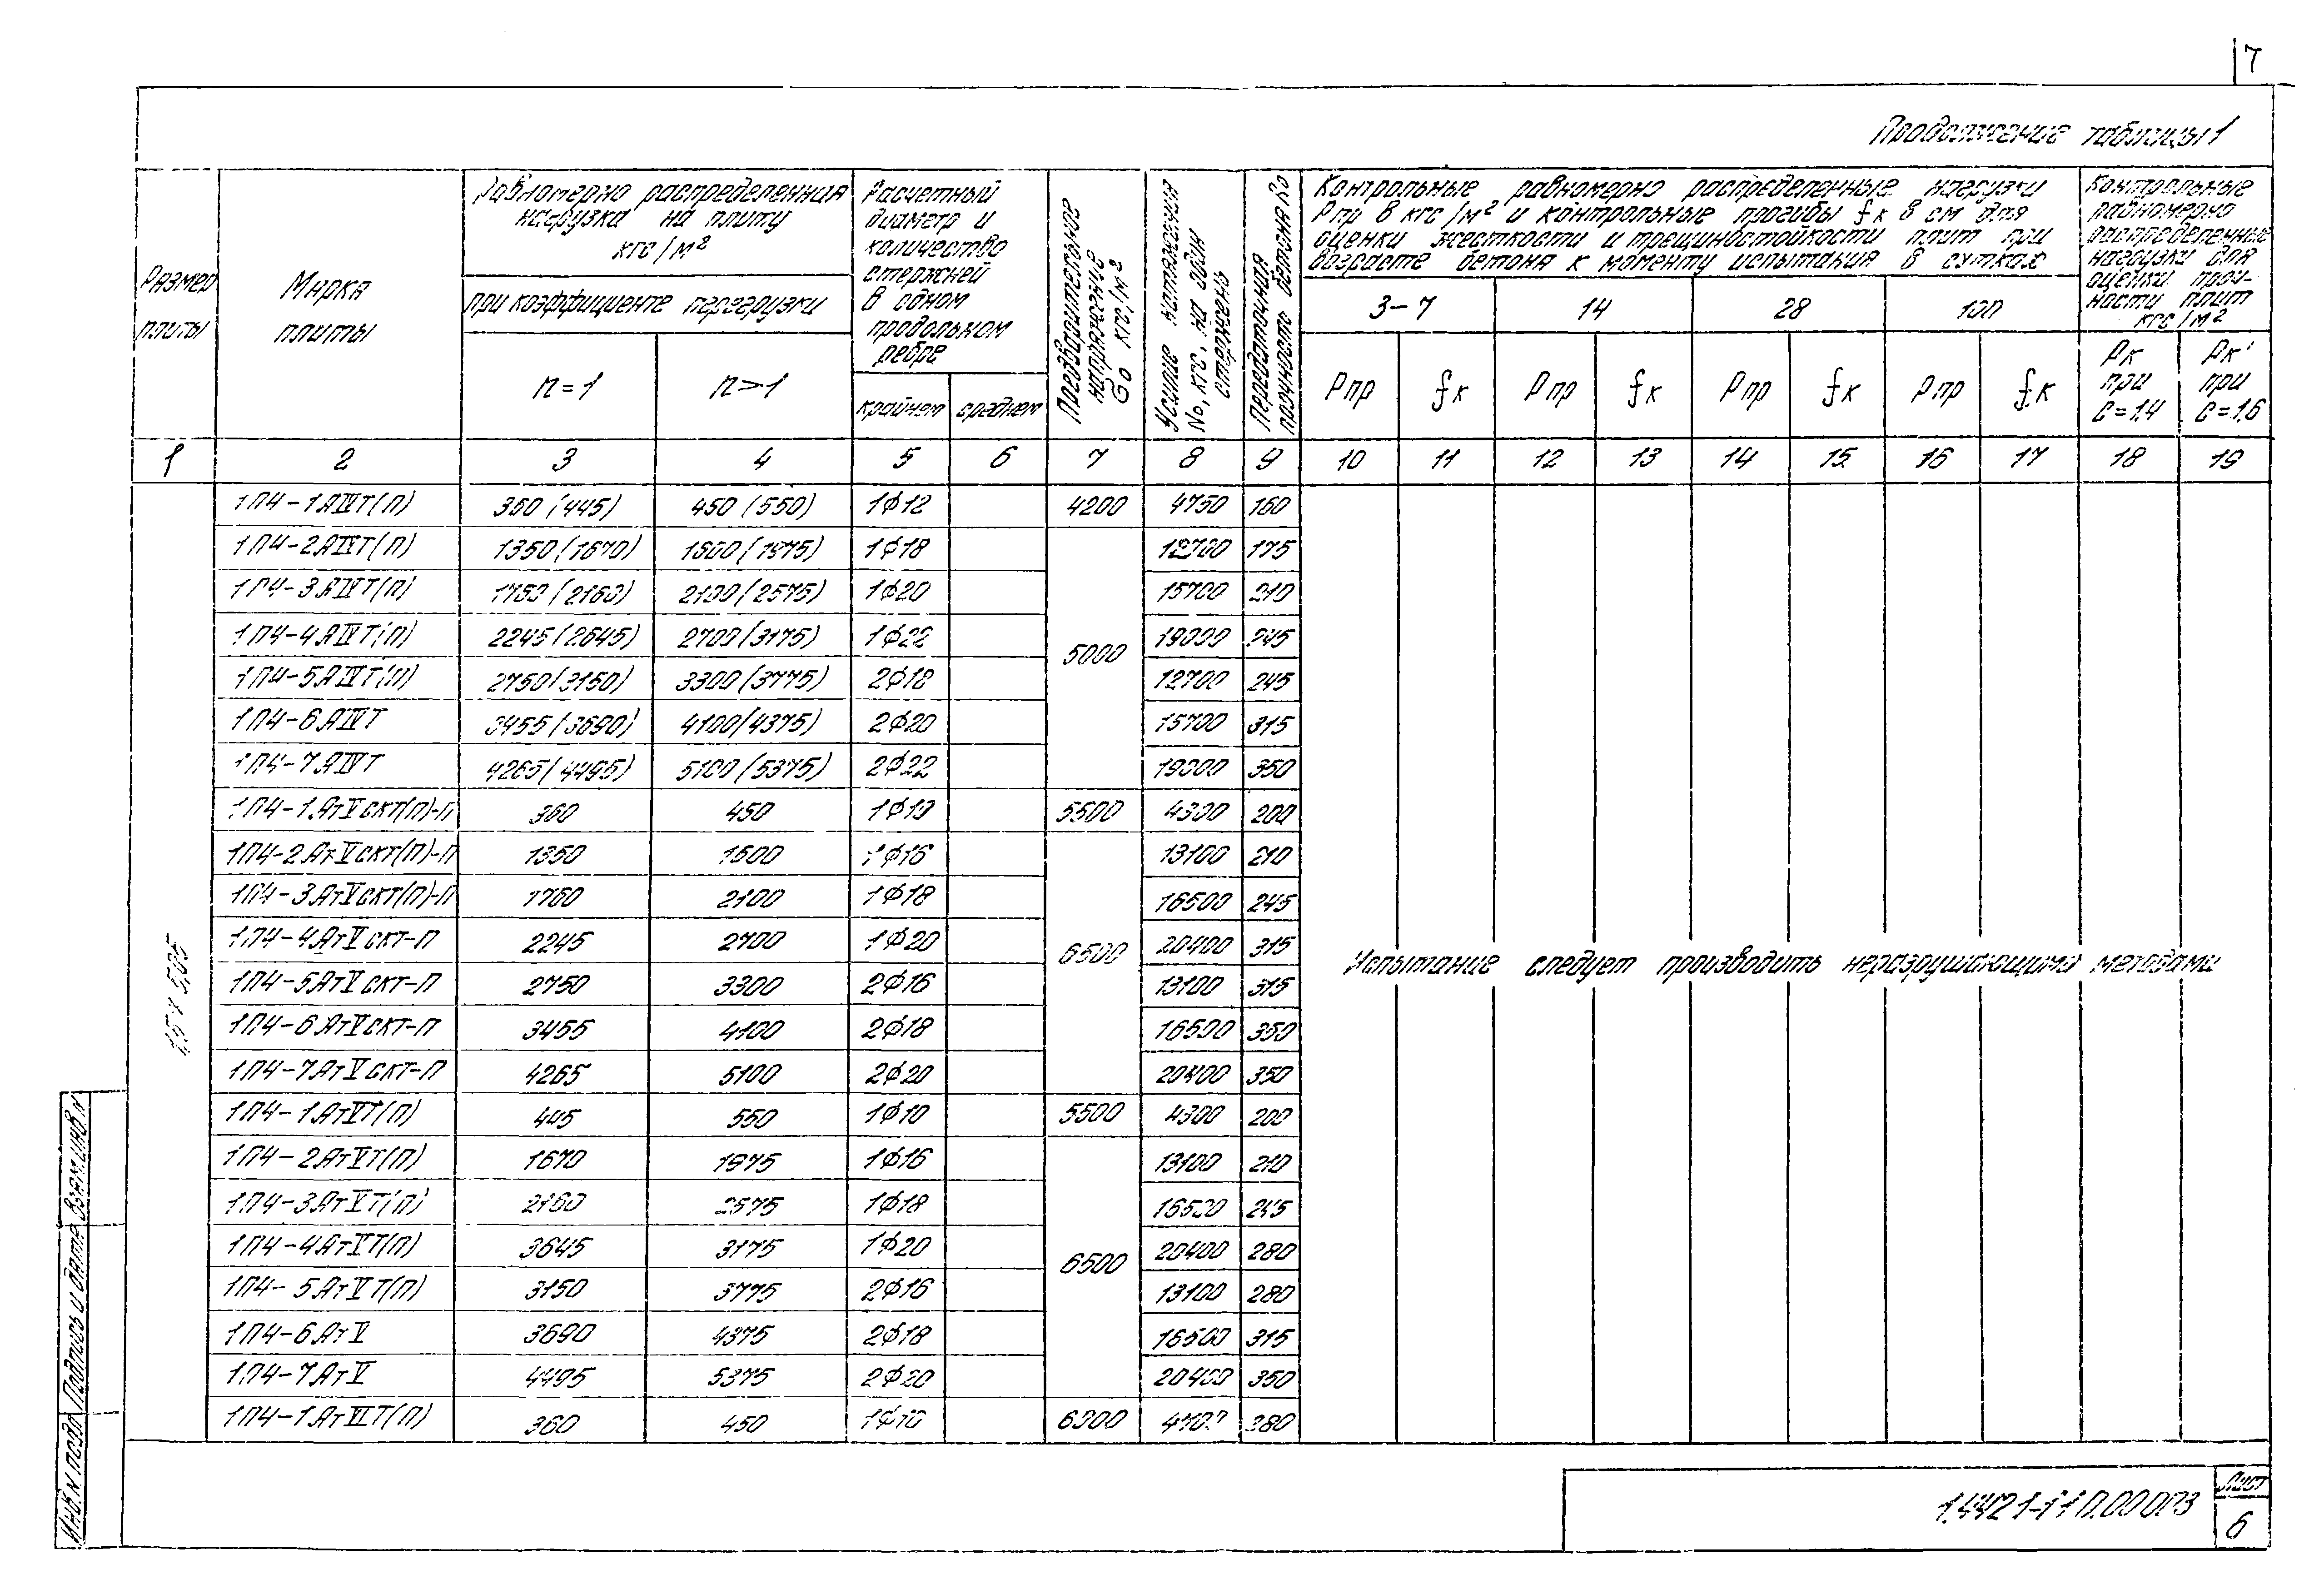 7
Продолжение таблицы 1
Размер плиты
Марка плиты
Равномерно распределенная нагрузка на плиту кгс/м²
при коэффициенте перегрузки
n=1
n>1
Расчетный диаметр и количество стержней в одном продольном ребре
крайнем
среднем
Предварительное напряжение Gо кгс/м²
Усилие натяжения No, кгс, на один стержень
Передаточная прочность бетона Ro
Контрольные равномерно распределенные нагрузки
Рпр в кгс/м² и контрольные прогибы fк в см для
оценки жесткости и трещиностойкости плит при
возрасте бетона к моменту испытания в сутках
3-7 14 28 100
Рпр fк Рпр fк Рпр fк Рпр fк
Контрольные равномерно распределенные нагрузки для оценки проч-ности плит кгс/м²
Рк при С=1,4
Рк' при С=1,6
1 2 3 4 5 6 7 8 9 10 11 12 13 14 15 16 17 18 19
1,5 х 5,05
1П4-1АIVТ(П) 360 (445) 450 (550) 1ф12 4200 4750 160
1П4-2АIVТ(П) 1350 (1670) 1600 (1975) 1ф18 12700 175
1П4-3АIVТ(П) 1750 (2160) 2100 (2575) 1ф20 15700 210
1П4-4АIVТ(П) 2245 (2645) 2700 (3175) 1ф22 19000 245
5000
1П4-5АIVТ(П) 2750 (3150) 3300 (3775) 2ф18 12700 245
1П4-6АIVТ 3455 (3690) 4100 (4375) 2ф20 15700 315
1П4-7АIVТ 4265 (4495) 5100 (5375) 2ф22 19000 350
1П4-1АтVСКТ(П)-П 360 450 1ф10 5500 4300 200
1П4-2АтVСКТ(П)-П 1350 1600 1ф16 13100 210
1П4-3АтVСКТ(П)-П 1750 2100 1ф18 16500 245
1П4-4АтVСКТ-П 2245 2700 1ф20 6500 20400 315
Испытание следует производить неразрушающими методами
1П4-5АтVСКТ-П 2750 3300 2ф16 13100 315
1П4-6АтVСКТ-П 3455 4100 2ф18 16500 350
1П4-7АтVСКТ-П 4265 5100 2ф20 20400 350
1П4-1АтVТ(П) 445 550 1ф10 5500 4300 200
1П4-2АтVТ(П) 1670 1975 1ф16 13100 210
1П4-3АтVТ(П) 2160 2575 1ф18 16500 245
1П4-4АтVТ(П) 3645 3175 1ф20 20400 280
6500
1П4-5АтVТ(П) 3150 3775 2ф16 13100 280
1П4-6АтV 3690 4375 2ф18 16500 315
1П4-7АтV 4495 5375 2ф20 20400 350
1П4-1АтVIТ(П) 360 450 1ф10 280
Инв.N подл. Подпись и дата Взам.инв.N
1.442.1-1
Лист
6